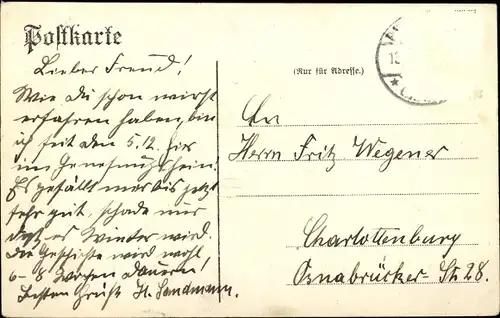 Postkarte
Lieber Freund!
Wie du schon wirst
erfahren haben, bin
ich seit den 5.12. hier
im Genesungsheim.
Es gefällt mir bis jetzt
sehr gut, schade nur
daß es Winter wird.
Die Geschichte wird wohl
6-8 Wochen dauern!
Besten Gruß H. Sandmann.
(Nur für Adresse.)
An
Herrn Fritz Wegener
Charlottenburg
Osnabrücker St 28.